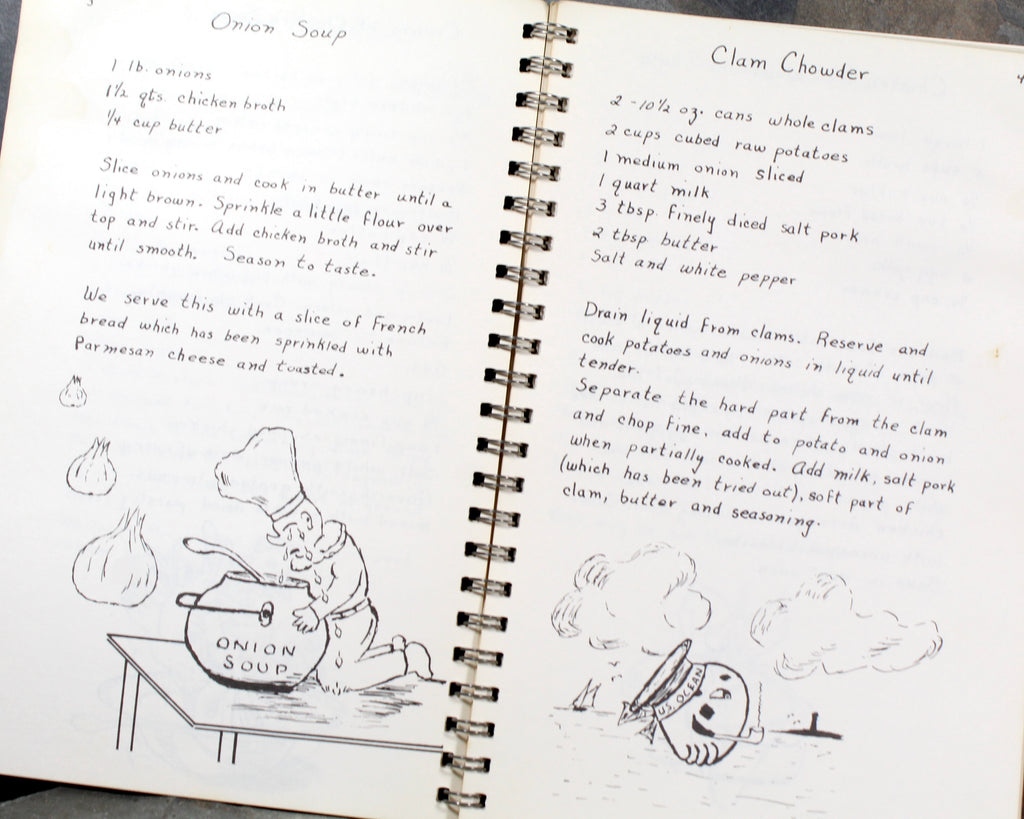 3
Onion Soup
1 lb. onions
1½ qts. chicken broth
¼ cup butter
Slice onions and cook in butter until a
light brown. Sprinkle a little flour over
top and stir. Add chicken broth and stir
until smooth. Season to taste.
We serve this with a slice of French
bread which has been sprinkled with
Parmesan cheese and toasted.
ONION
SOUP
4
Clam Chowder
2 - 10½ oz. cans whole clams
2 cups cubed raw potatoes
1 medium onion sliced
1 quart milk
3 tbsp. finely diced salt pork
2 tbsp butter
Salt and white pepper
Drain liquid from clams. Reserve and
cook potatoes and onions in liquid until
tender.
Separate the hard part from the clam
and chop fine, add to potato and onion
when partially cooked. Add milk, salt pork
(which has been tried out), soft part of
clam, butter and seasoning.
U.S. OCEAN